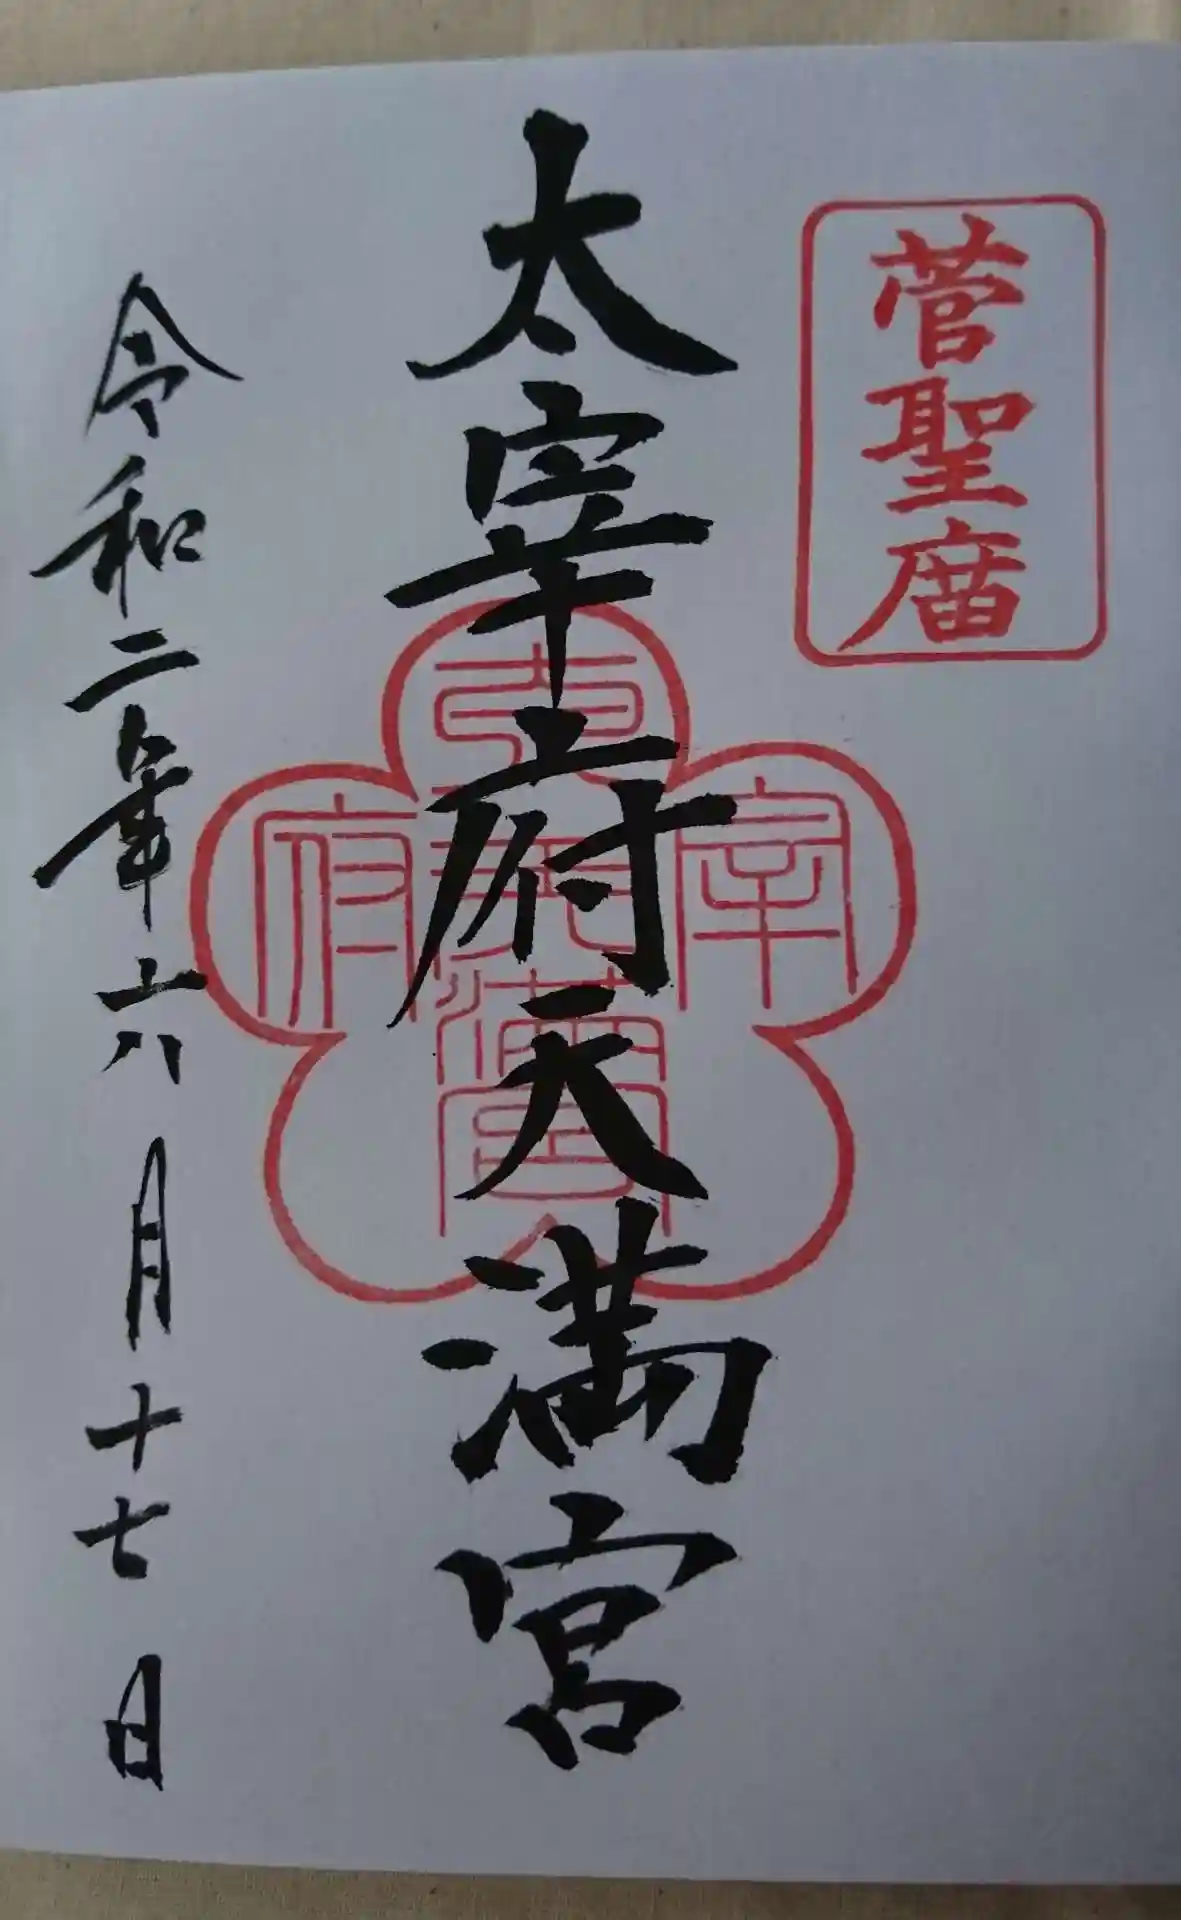 菅聖庿
太宰府天満宮
太宰府天満宮
令和二年六月十七日